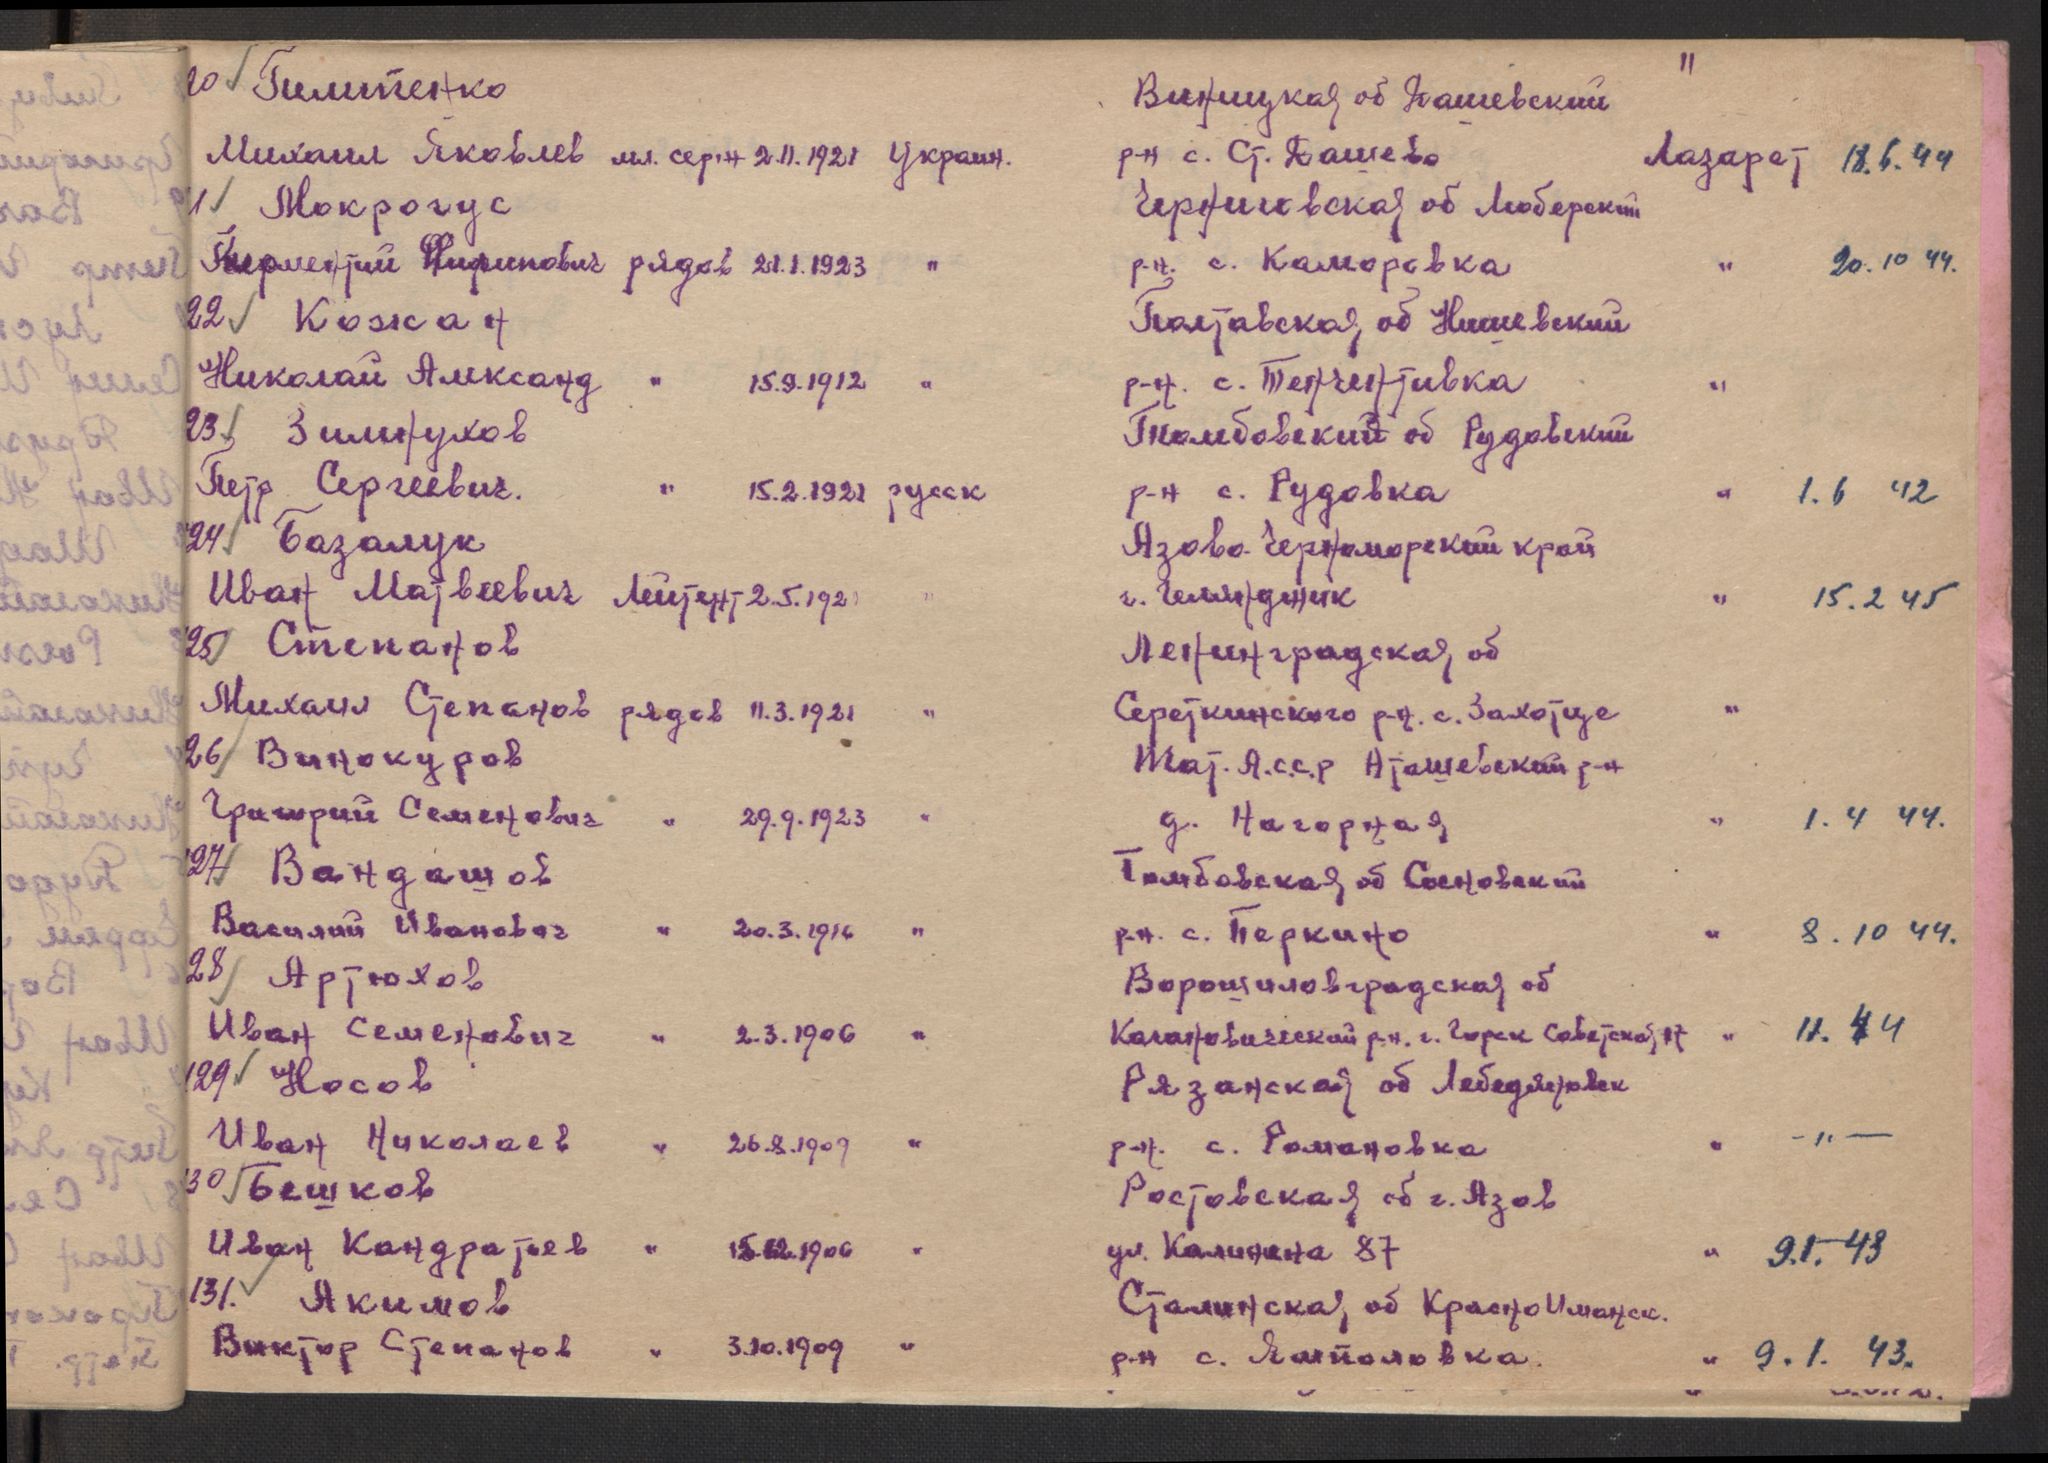 20 Пилипенко Виницкая об Дашевский "
Михаил Яковлев мл. серж 2.11.1921 Украин. р-н с. Ст. Дашево Лазарет 18.6.44
1 Мокрогус Черниговская об Люберский
Терментий рядов 21.1.1923 " р-н. с. Каморовка " 20.10 44.
22 Кожан Полтавская об Нишевский
Николай Александ " 15.9.1912 " р-н. с. "
23 Зимнухов Тамбовский об Рудовский
Петр Сергеевич. " 15.2.1921 русск р-н с. Рудовка " 1.6 42
124 Базалук Азово-Черноморский край
Иван Матвеевич Лейтент 2.5.1921 " г. Гелянджик " 15.2 45
125 Степанов Ленинградская об
Михаил Степанов рядов 11.3.1921 " Середкинского р-н. с. Захотце "
26 Винокуров Тат. А.с.с.р Аташевский р-н
Григорий Семенович " 29.9.1923 " д. Нагорная " 1.4 44.
127 Вандашов Тамбовская об Сосновский
Василий Иванович " 20.3.1916 " р-н. с. Перкино " 8.10 44.
28 Артюхов Ворошиловградская об
Иван Семенович " 2.3.1906 " Кагановический р-н. г. Горск Советская 17 " 11. 44
129 Носов Рязанская об Лебедяновск
Иван Николаев " 26.8.1909 " р-н. с. Романовка " -"-
130 Бешков Ростовская об г. Азов
Иван Кандратьев " 15.12.1906 " ул. Калинина 87 " 9.1.43
131. Якимов Сталинская об КрасноИманск.
Виктор Степанов " 3.10.1909 " р-н с. Ямполовка. " 9.1. 43.